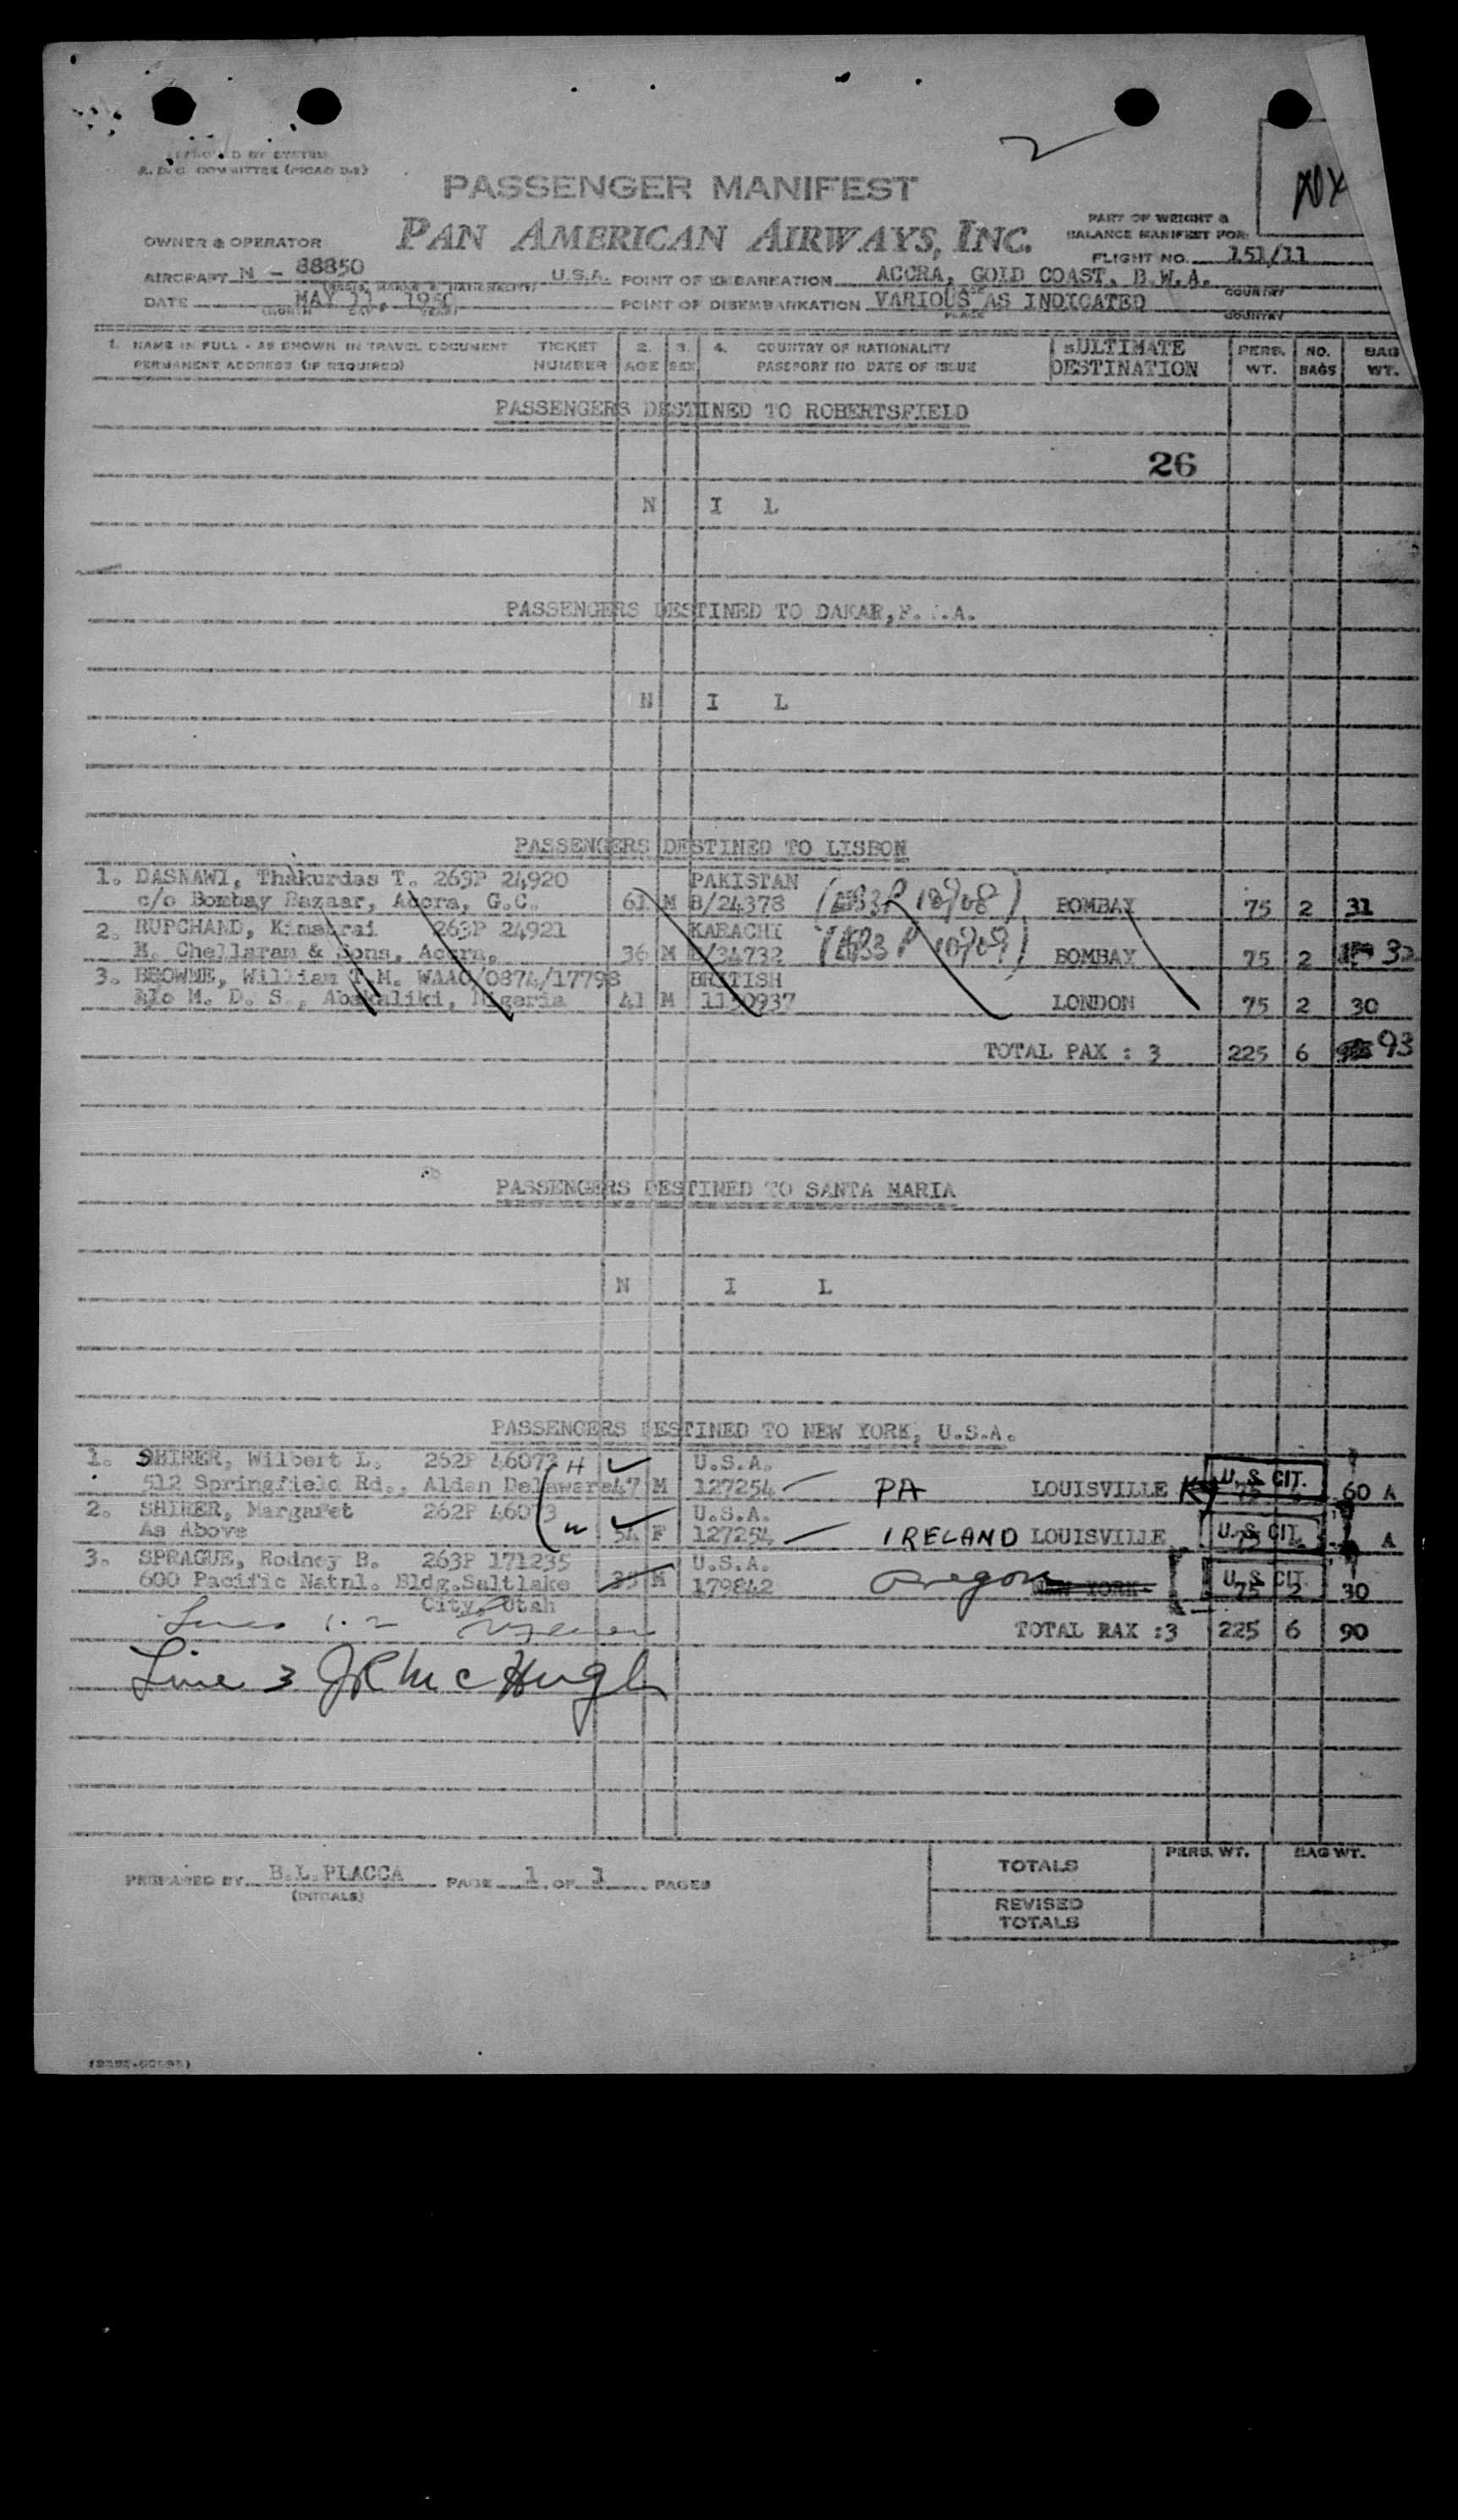 A. D. C. COMMITTEE (PICAO D-2)
PASSENGER MANIFEST
PAN AMERICAN AIRWAYS, INC.
PART OF WEIGHT &
BALANCE MANIFEST FOR:
OWNER & OPERATOR
FLIGHT NO. 151/11
AIRCRAFT N - 88850 U.S.A. POINT OF EMBARKATION ACCRA, GOLD COAST, B.W.A.
COUNTRY
DATE MAY 11, 1950 POINT OF DISEMBARKATION VARIOUS AS INDICATED
PLACE COUNTRY
1. NAME IN FULL - AS SHOWN IN TRAVEL DOCUMENT TICKET 2. 3. 4. COUNTRY OF NATIONALITY sULTIMATE PERS. NO. BAG
PERMANENT ADDRESS (IF REQUIRED) NUMBER AGE SEX PASSPORT NO. DATE OF ISSUE DESTINATION WT. BAGS WT.
PASSENGERS DESTINED TO ROBERTSFIELD
26
N I L
PASSENGERS DESTINED TO DAKAR, F. .A.
N I L
PASSENGERS DESTINED TO LISBON
1. DASNAWI, Thakurdas T. 263P 24920 PAKISTAN
c/o Bombay Bazaar, Accra, G.C. 61 M B/24378 BOMBAY 75 2 31
2. RUPCHAND, Kimatrai 263P 24921 KARACHI
M. Chellaram & Sons, Accra. 36 M /34732 BOMBAY 75 2 32
3. BROWNE, William T.M. WAAC/0874/17798 BRITISH
M. D. S., Abakaliki, Nigeria 41 M 1150937 LONDON 75 2 30
TOTAL PAX : 3 225 6 93
PASSENGERS DESTINED TO SANTA MARIA
N I L
PASSENGERS DESTINED TO NEW YORK, U.S.A.
1. SHIRER, Wilbert L. 262P 46073 H U.S.A. U. S. CIT.
512 Springfield Rd., Alden Delaware 47 M 127254 PA LOUISVILLE Ky 75 60 A
2. SHIRER, Margaret 262P 46073 U.S.A. U. S. CIT.
As Above W 54 F 127254 IRELAND LOUISVILLE 75 A
3. SPRAGUE, Rodney B. 263P 171235 U.S.A. U. S. CIT.
600 Pacific Natnl. Bldg.Saltlake 35 M 179842 Oregon NEW YORK 75 2 30
City, Utah
Lines 1.2
TOTAL RAX :3 225 6 90
Line 3 JR McHugh
PREPARED BY B.L.PLACCA PAGE 1 OF 1 PAGES
(INITIALS)
PERS. WT. BAG WT.
TOTALS
REVISED
TOTALS